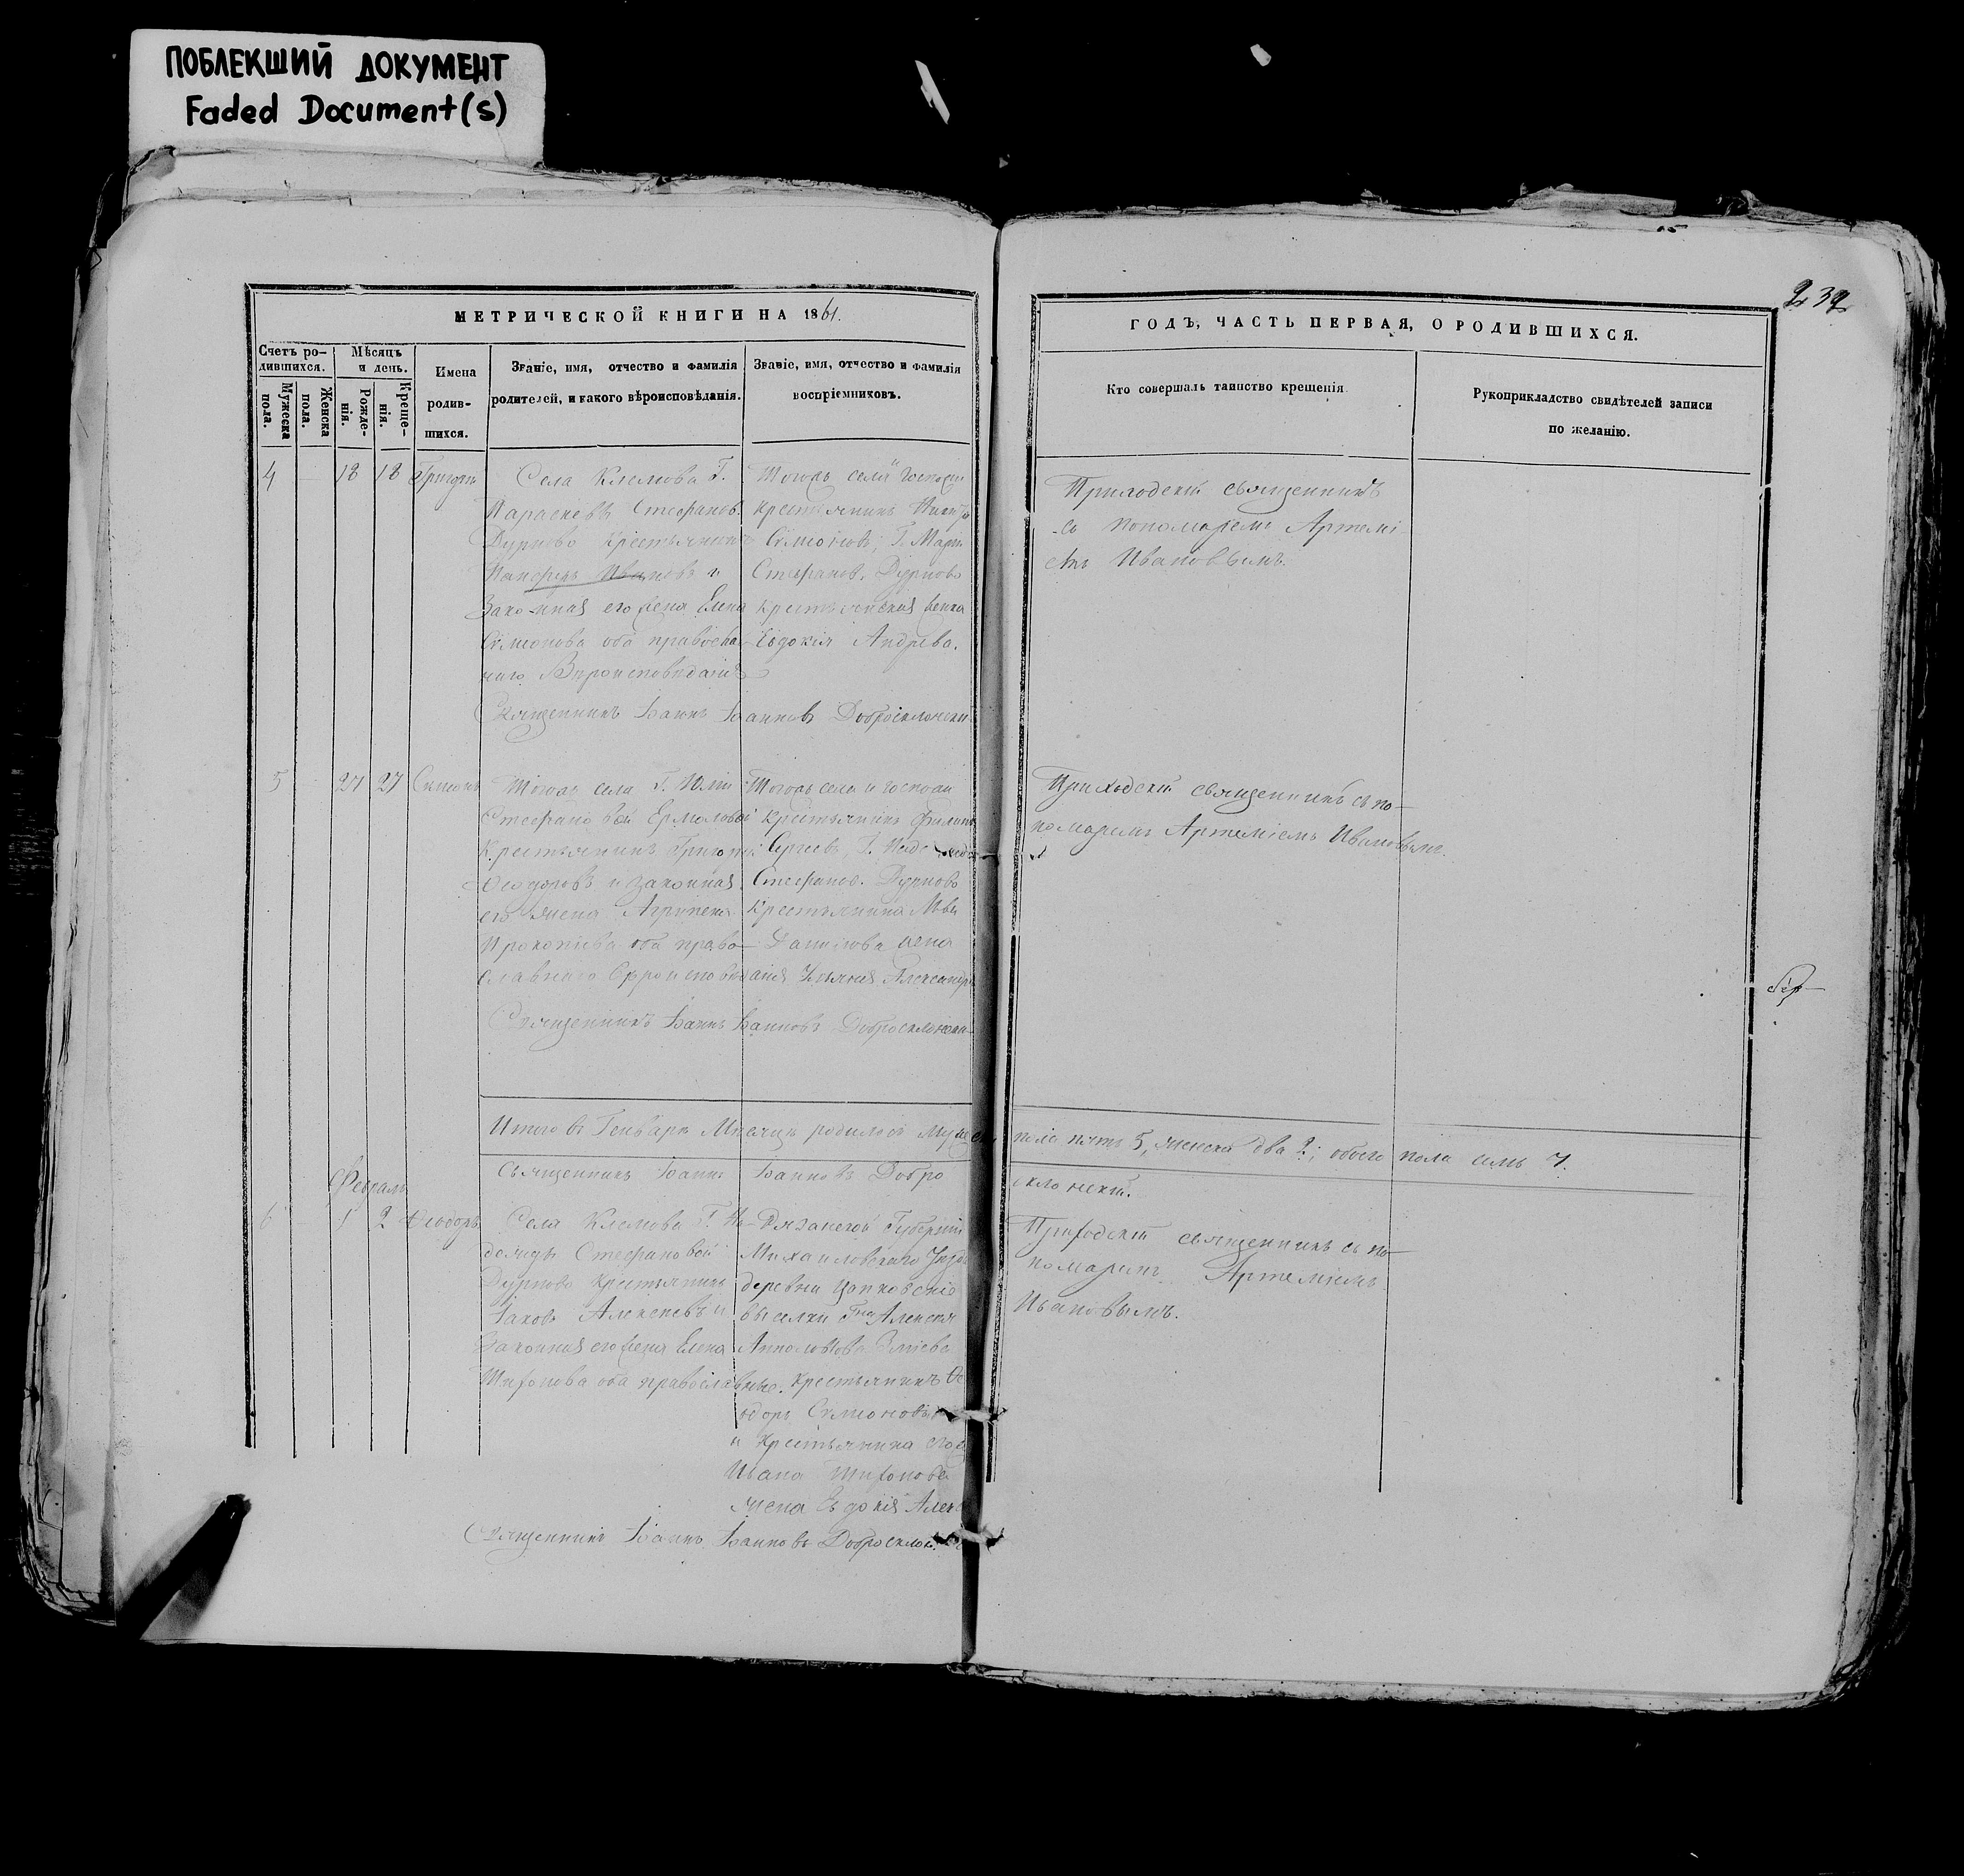 ПОБЛЕКШИЙ ДОКУМЕНТ
Faded Document(s)
232
МЕТРИЧЕСКОЙ КНИГИ НА 1861.
Счетъ ро-
дившихся.
Мужеска
пола.
Женска
пола.
Мѣсяцъ
и день.
Рожде-
нія.
Креще-
нія.
Имена
родив-
шихся.
Званіе, имя, отчество и фамилія
родителей, и какого вѣроисповѣданія.
Званіе, имя, отчество и фамилія
воспріемниковъ.
4 18 18 Григорій
Села Клемова Г.
Параскевы Стефанов.
Дурново крестьянинъ
Ивановъ и
Законная его жена Елена
Симонова оба православ-
наго Вѣроисповѣданія
Тогожъ села
крестьянинъ
Симоновъ, Г. Маріи
Стефанов. Дурново
крестьянская
Евдокія Андрева.
Священникъ Іоаннъ Іоанновъ Добросклонскій
5 27 27 Симеонъ
Тогожъ села Г. Юліи
Стефановой Ермоловой
Крестьянинъ Григорій
Ѳеодоровъ и законная
его жена Агрипена
Прокопіева оба право-
славнаго Вѣроисповѣданія
Тогожъ села и господи
Крестьянинъ Филипъ
Сергеевъ, Г.
Стефанов. Дурново
Крестьянина
Данилова жена
Ульянія Александр
Священникъ Іоаннъ Іоанновъ Добросклонскій
Итого въ Генварѣ Мѣсяцѣ родилось мужеска
Священникъ Іоаннъ Іоанновъ Добро
Февраль
6 1 2 Ѳеодоръ
Села Клемова Г. На-
дежды Стефановой
Дурново крестьянинъ
Іаковъ Алексеевъ и
Законная его жена Елена
Тихонова оба православные.
Рязанской Губерніи
Михаиловскаго Уезда
деревни
выселки Гна Алексея
крестьянинъ Ѳе
одоръ Симоновъ
и Крестьянина
Ивана Тихонова
жена Евдокія Алек
Священникъ Іоаннъ Іоанновъ Добросклонскій
ГОДЪ, ЧАСТЬ ПЕРВАЯ, О РОДИВШИХСЯ.
Кто совершалъ таинство крещенія.
Рукоприкладство свидѣтелей записи
по желанію.
Приходскій священникъ
съ пономаремъ Артемі
емъ Ивановымъ.
Приходскій священникъ съ по-
номаремъ Артеміемъ Ивановымъ.
пола пять 5, женска два 2; обоего пола семь 7.
склонскій.
Приходскій священникъ съ по-
номаремъ Артеміемъ
Ивановымъ.